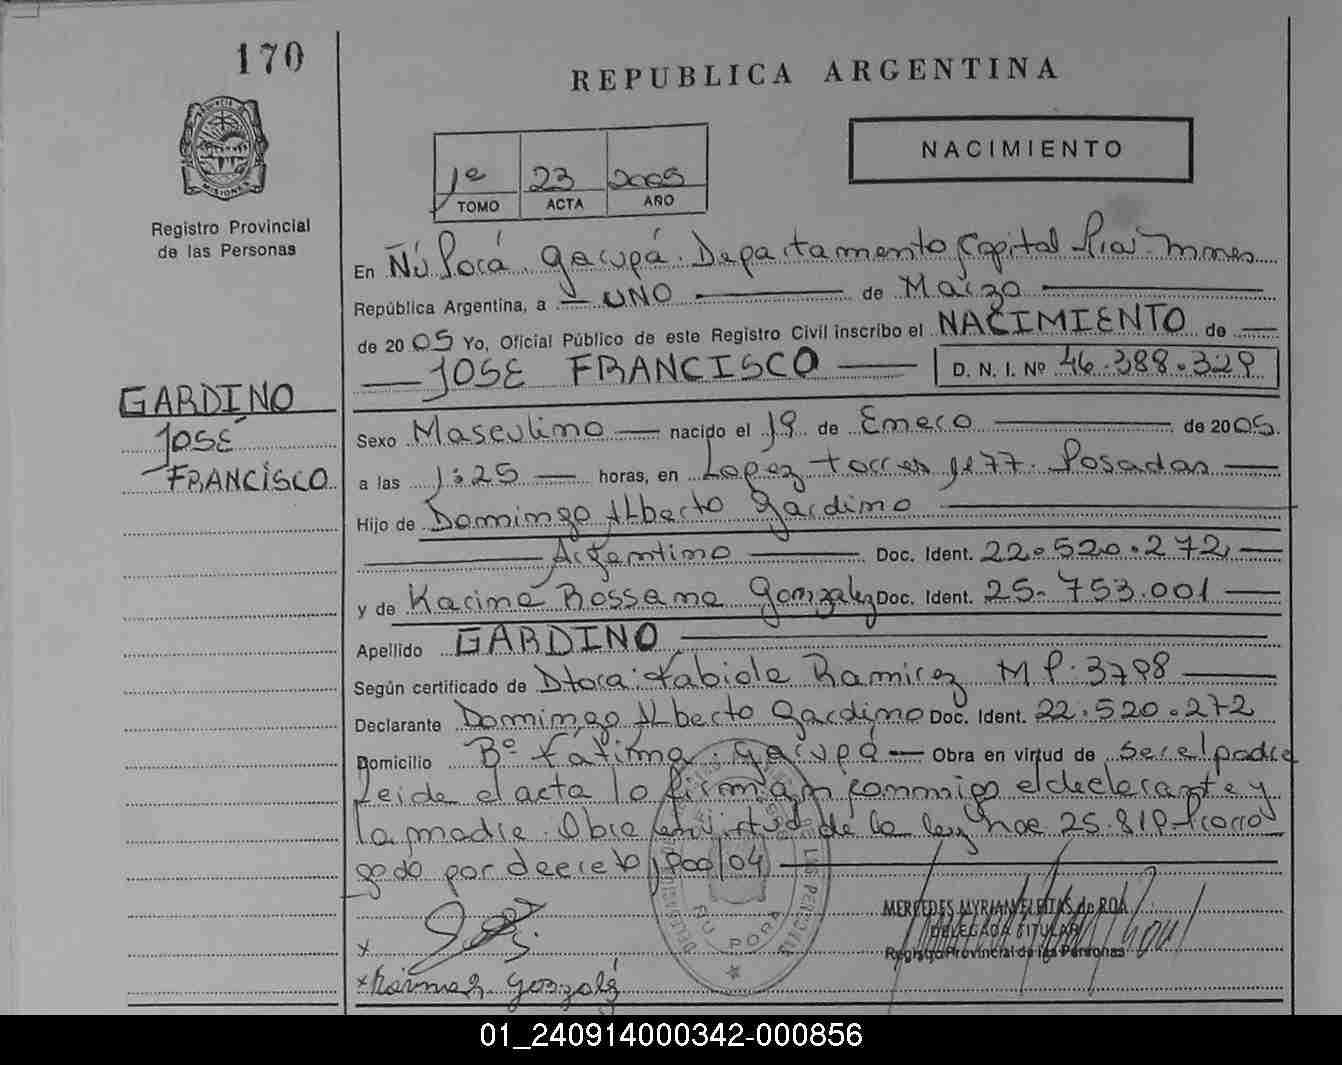 170
REPUBLICA ARGENTINA
NACIMIENTO
1º 23 2005
TOMO ACTA AÑO
MISIONES
Registro Provincial
de las Personas
En Ñú Porá. Garupá. Departamento Capital Pcia. Mnes
República Argentina, a — UNO — de Marzo —
de 2005 Yo, Oficial Público de este Registro Civil inscribo el NACIMIENTO de —
— JOSE FRANCISCO — D. N. I. Nº 46.388.329
GARDINO
JOSÉ
FRANCISCO
Sexo Masculino — nacido el 19 de Enero — de 2005.
a las 1:25 — horas, en Lopez torres 1177. Posadas —
Hijo de Domingo Alberto Gardino —
— Argentino — Doc. Ident. 22.520.272 —
y de Karina Rossana Gonzalez Doc. Ident. 25.753.001 —
Apellido GARDINO —
Según certificado de Dtora: Fabiola Ramirez M P: 3798 —
Declarante Domingo Alberto Gardino Doc. Ident. 22.520.272
Domicilio Bº Fátima. Garupá — Obra en virtud de ser el padre
Leida el acta lo firman conmigo el declarante y
la madre. Obra en virtud de la ley nac. 25.819 Prorro
gado por decreto 1900/04 —
x
x Karina R. Gonzalez
MERCEDES MYRIAM FLEITAS de ROA
DELEGADA TITULAR
Registro Provincial de las Personas
DE LAS PERSONAS
ÑU PORA
01_240914000342-000856